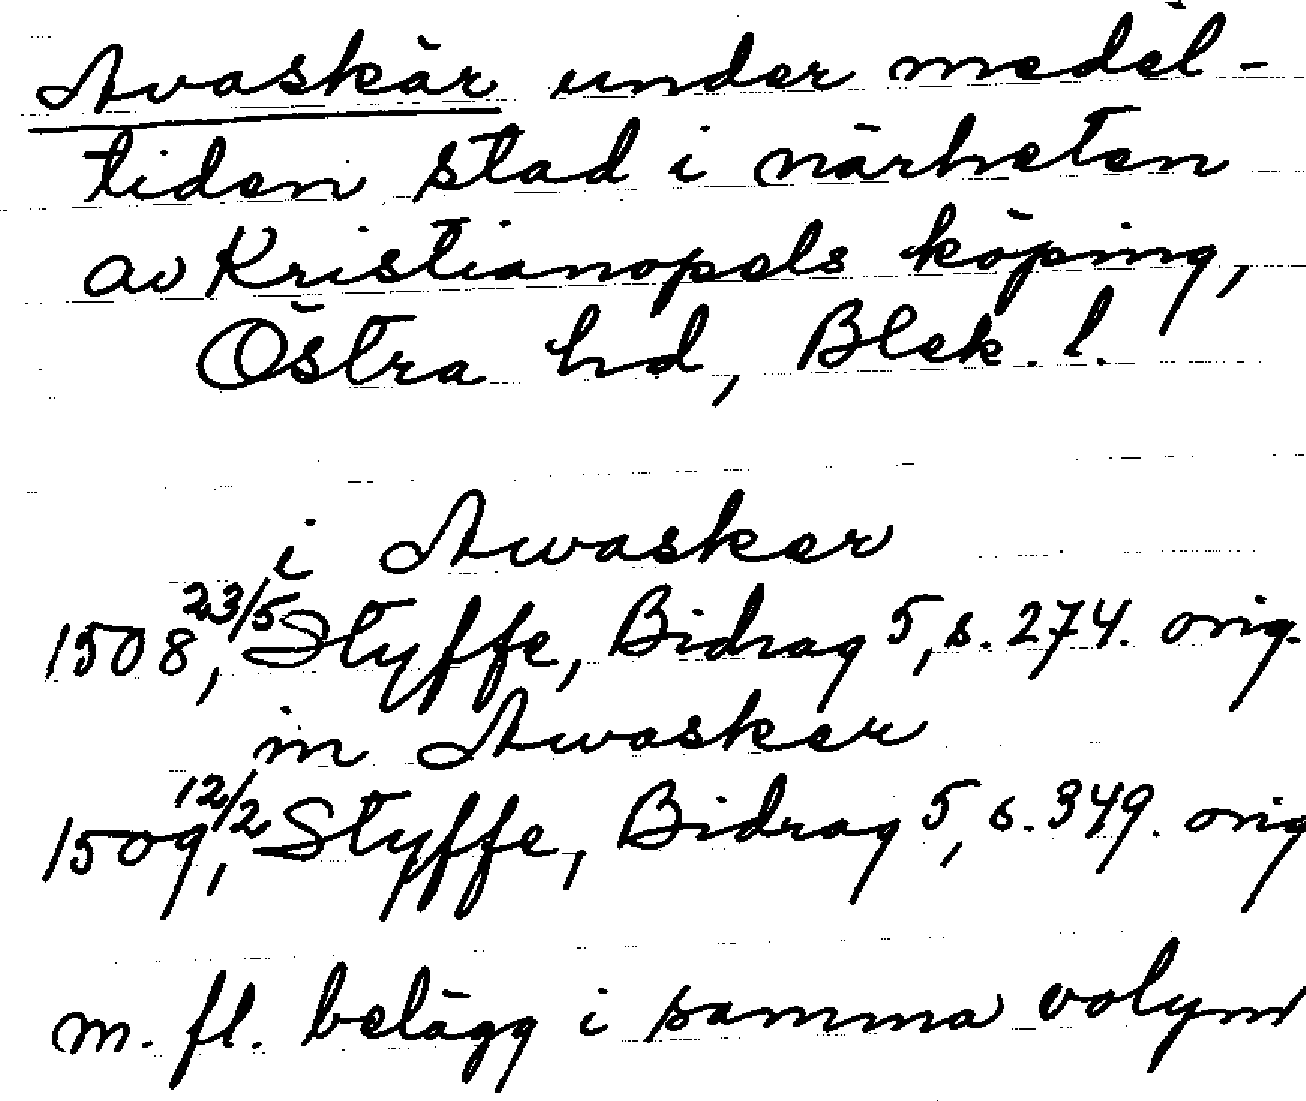 Avaskär under medel-
tiden stad i närheten
av Kristianopels köping,
Östra hd, Blek. l.
i Awasker
1508 23/5, Styffe, Bidrag 5, s. 274. orig.
in Awasker
1509 12/2, Styffe, Bidrag 5, s. 349. orig
m. fl. belägg i samma volym